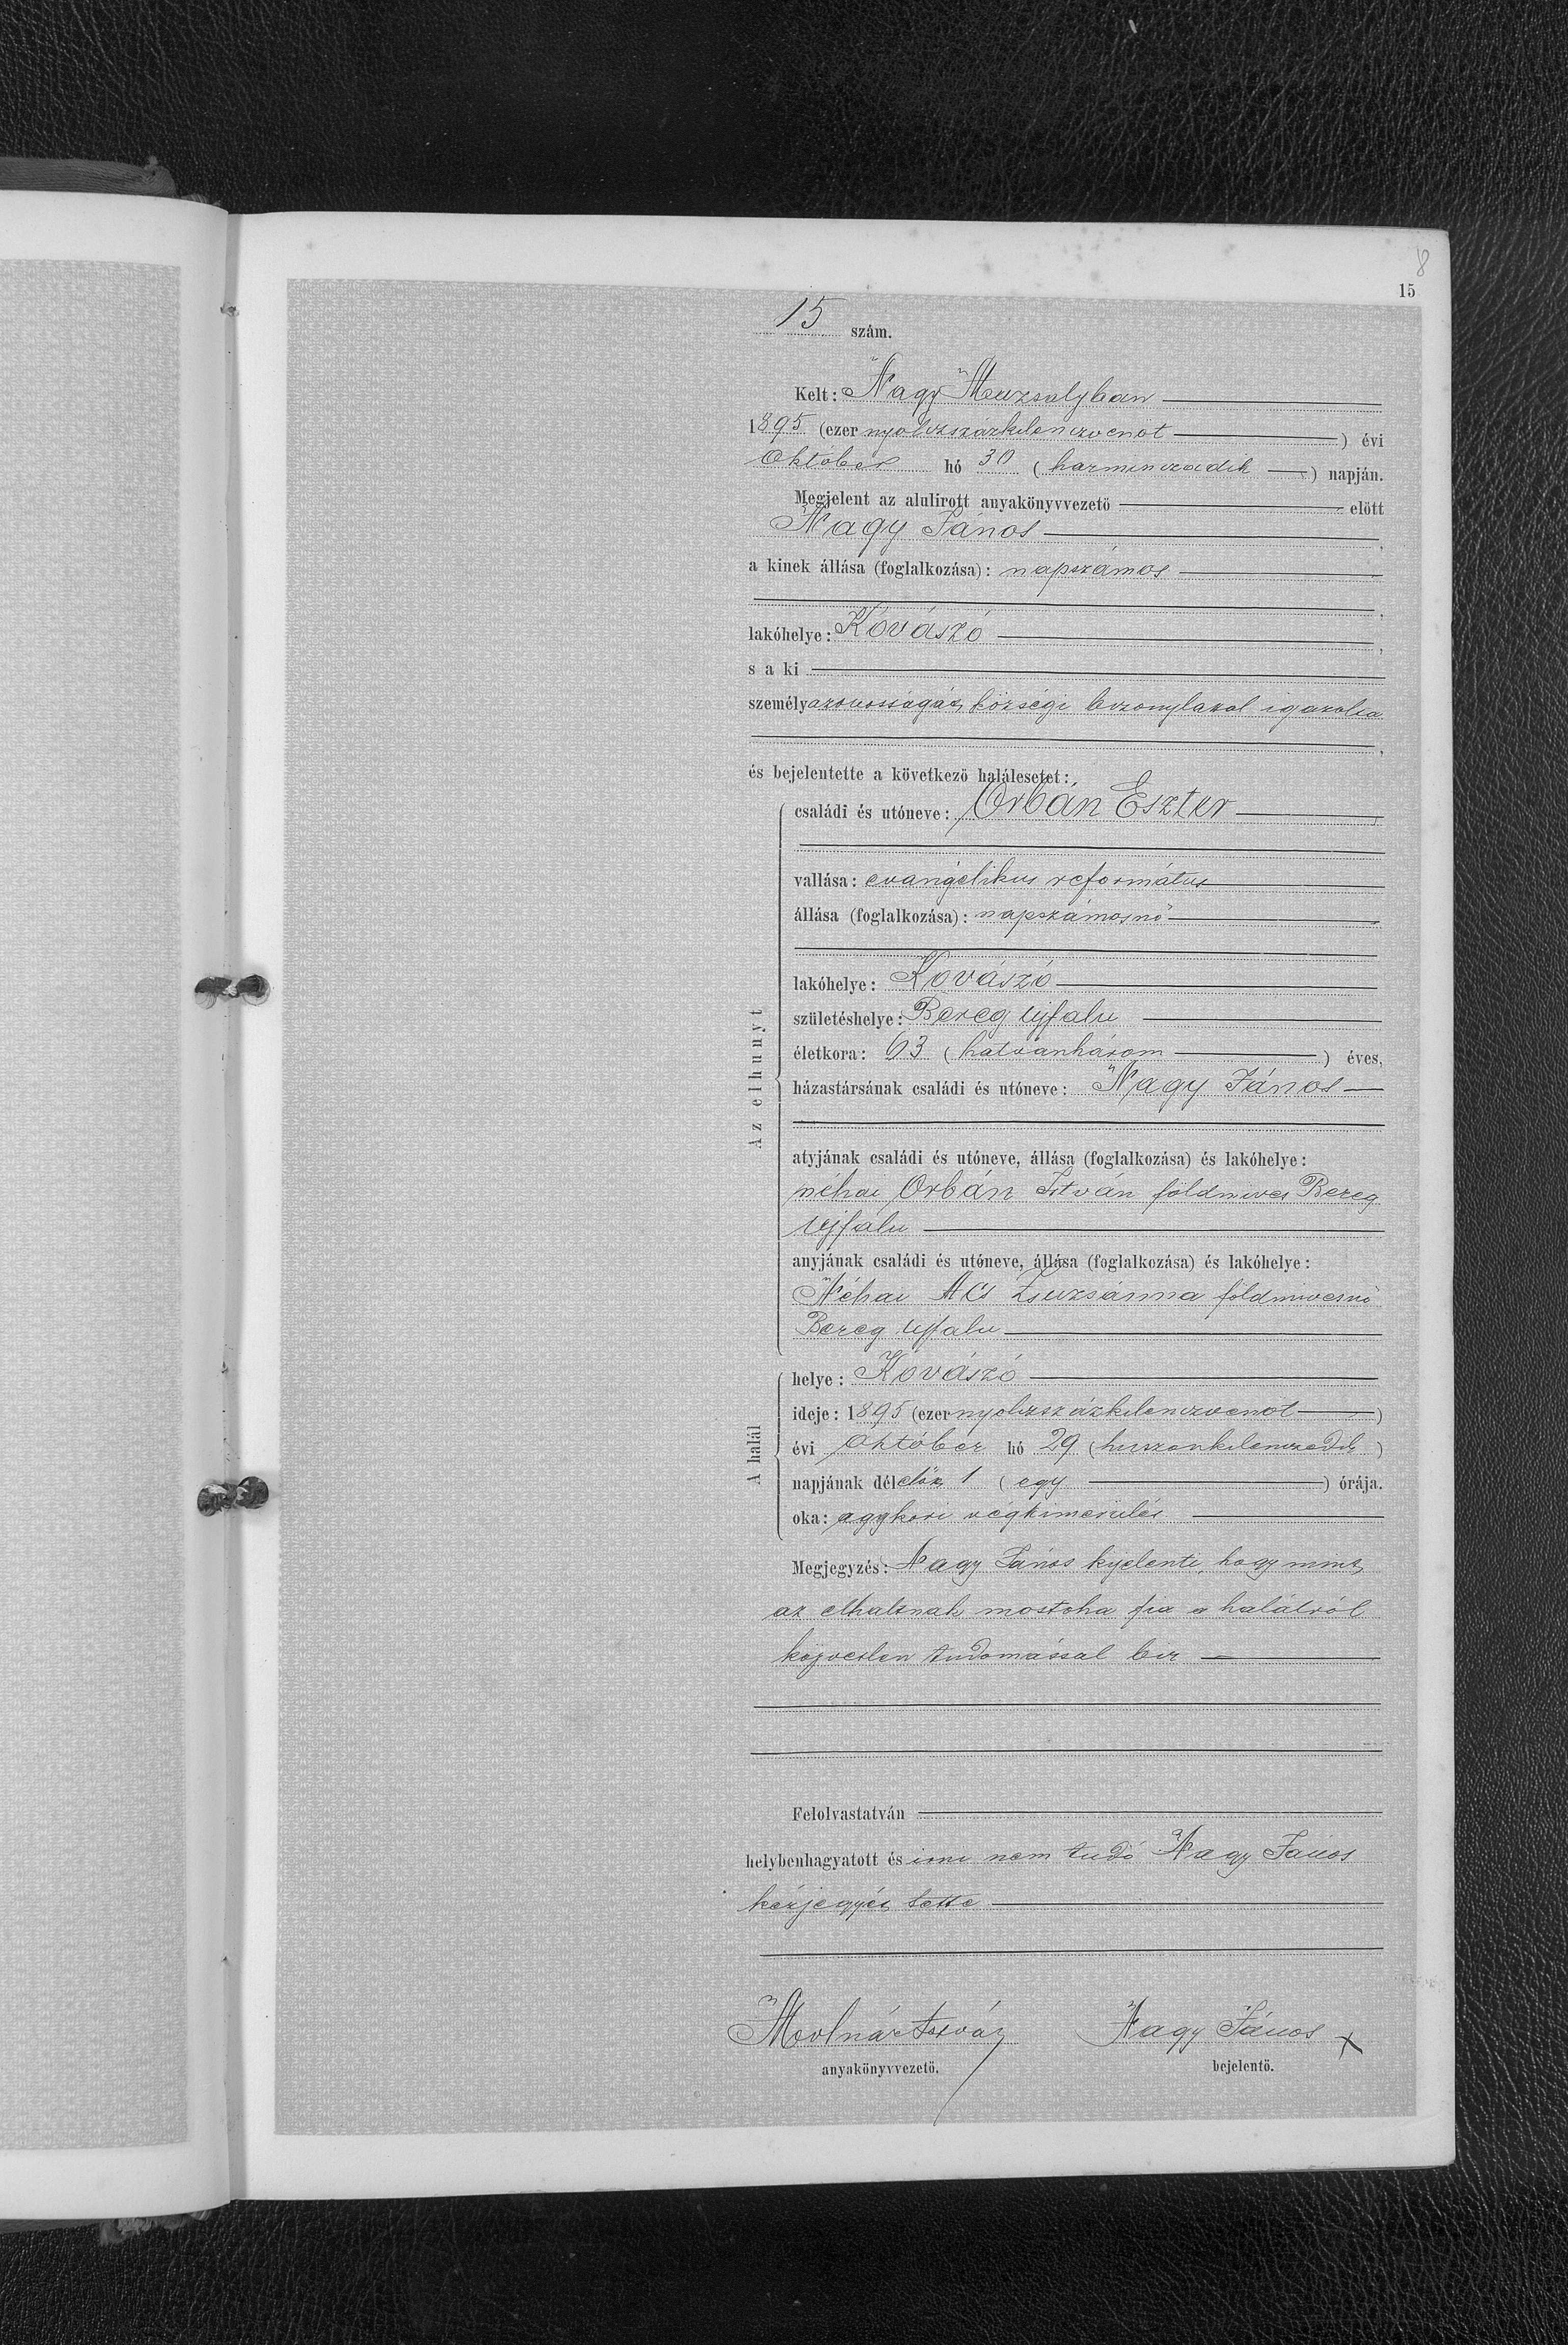 8
15
15 szám.
Kelt: Nagy Muzsalyban
1895 (ezer nyolczszázkilenczvenöt ) évi
Október hó 30 ( harminczadik ) napján.
Megjelent az alulirott anyakönyvvezető előtt
Nagy János ,
a kinek állása (foglalkozása): napszámos
,
lakóhelye: Kovászó ,
s a ki
személyazonosságát községi bizonylatal igazolta
,
és bejelentette a következő halálesetet:
Az elhunyt
családi és utóneve: Orbán Eszter ,
vallása: evangélikus református
állása (foglalkozása): napszámosnő
lakóhelye: Kovászó
születéshelye: Bereg Ujfalu
életkora: 63 ( hatvanhárom ) éves,
házastársának családi és utóneve: Nagy János
atyjának családi és utóneve, állása (foglalkozása) és lakóhelye:
néhai Orbán István földmives Bereg
Ujfalu
anyjának családi és utóneve, állása (foglalkozása) és lakóhelye:
Néhai Ács Zsuzsánna földmivesnő
Bereg Ujfalu
A halál
helye: Kovászó
ideje: 1895 (ezer nyolczszázkilenczvenöt )
évi Október hó 29 ( huszonkilenczedik )
napjának délelőtt 1 ( egy ) órája.
oka: aggkori végkimerülés
Megjegyzés: Nagy János kijelenti, hogy mint
az elhaltnak mostoha fia a halálról
közvetlen tudomással bir
Felolvastatván
helybenhagyatott és irni nem tudó Nagy János
kézjegyét tette
Molnár István Nagy János x
anyakönyvvezető. bejelentő.